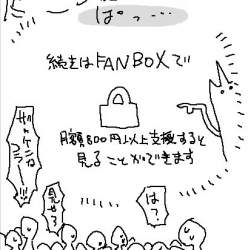 ぱっ…
続きはFANBOXで
月額800円以上支援すると
見ることができます
は？
見せろ
ザッケンね
コラー!!!